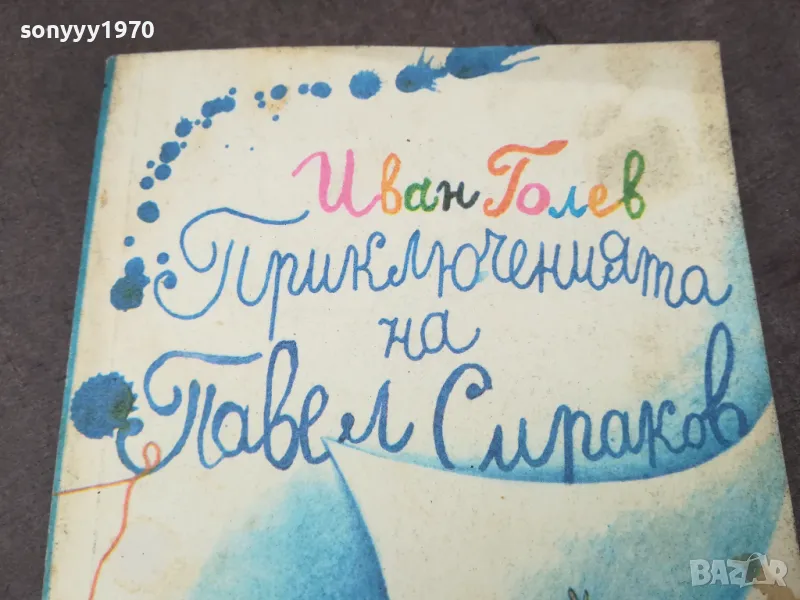 sonyyy1970
Иван Голев
Приключенията
на
Павел Сираков
BAZAR